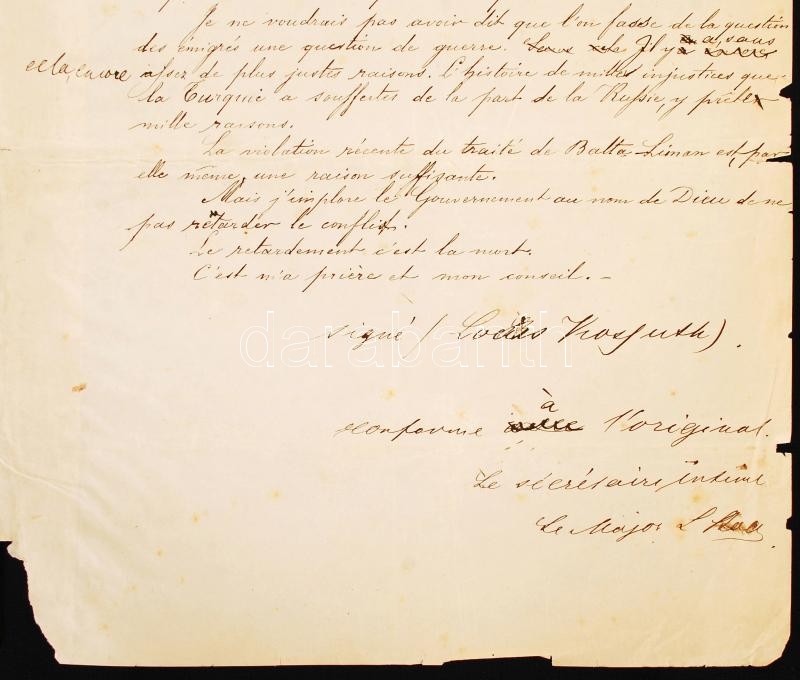 Je ne voudrais pas avoir dit que l'on fasse de la question
des émigrés une question de guerre. Il y a, sans
cela, encore assez de plus justes raisons. L'histoire de milles injustices que
la Turquie a souffertes de la part de la Russie, y prête
mille raisons.
La violation récente du traité de Balta-Liman est, par
elle même, une raison suffisante.
Mais j'implore le Gouvernement au nom de Dieu de ne
pas retarder le conflit.
Le retardement c'est la mort.
C'est m'a prière et mon conseil. –
signé (Louis Kossuth).
darabanth
conforme à l'original.
Le sécrétaire intime
Le Major